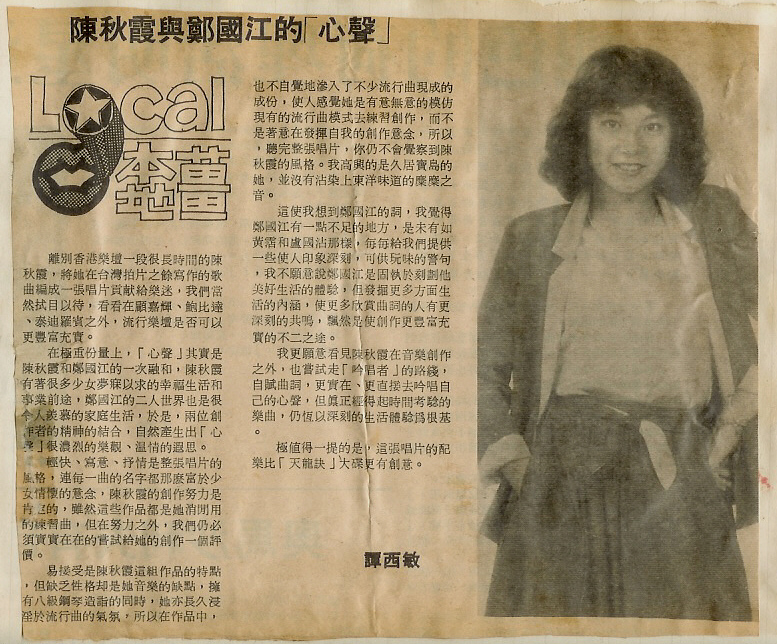 陳秋霞與鄭國江的「心聲」
Local
本地薑
離別香港樂壇一段很長時間的陳
秋霞，將她在台灣拍片之餘寫作的歌
曲編成一張唱片貢獻給樂迷，我們當
然拭目以待，看看在顧嘉輝、鮑比達
、泰迪羅賓之外，流行樂壇是否可以
更豐富充實。
在極重份量上，「心聲」其實是
陳秋霞和鄭國江的一次融和，陳秋霞
有著很多少女夢寐以求的幸福生活和
事業前途，鄭國江的二人世界也是很
令人羨慕的家庭生活，於是，兩位創
作者的精神的結合，自然產生出「心
聲」很濃烈的樂觀、溫情的遐思。
輕快、寫意、抒情是整張唱片的
風格，連每一曲的名字都那麼富於少
女情懷的意念，陳秋霞的創作努力是
肯定的，雖然這些作品都是她消閒用
的練習曲，但在努力之外，我們仍必
須實實在在的嘗試給她的創作一個評
價。
易接受是陳秋霞這組作品的特點
，但缺乏性格却是她音樂的缺點，擁
有八級鋼琴造詣的同時，她亦長久浸
淫於流行曲的氣氛，所以在作品中，
也不自覺地滲入了不少流行曲現成的
成份，使人感覺她是有意無意的模仿
現有的流行曲模式去練習創作，而不
是著意在發揮自我的創作意念，所以
，聽完整張唱片，你仍不會覺察到陳
秋霞的風格。我高興的是久居寶島的
她，並沒有沾染上東洋味道的糜糜之
音。
這使我想到鄭國江的詞，我覺得
鄭國江有一點不足的地方，是未有如
黃霑和盧國沾那樣，每每給我們提供
一些使人印象深刻，可供玩味的警句
，我不願意說鄭國江是固執於刻劃他
美好生活的體驗，但發掘更多方面生
活的內涵，使更多欣賞曲詞的人有更
深刻的共鳴，飄然是使創作更豐富充
實的不二之途。
我更願意看見陳秋霞在音樂創作
之外，也嘗試走「吟唱者」的路綫，
自賦曲詞，更實在、更直接去吟唱自
己的心聲，但眞正經得起時間考驗的
樂曲，仍恆以深刻的生活體驗爲根基
。
極值得一提的是，這張唱片的配
樂比「天龍訣」大碟更有創意。
譚西敏